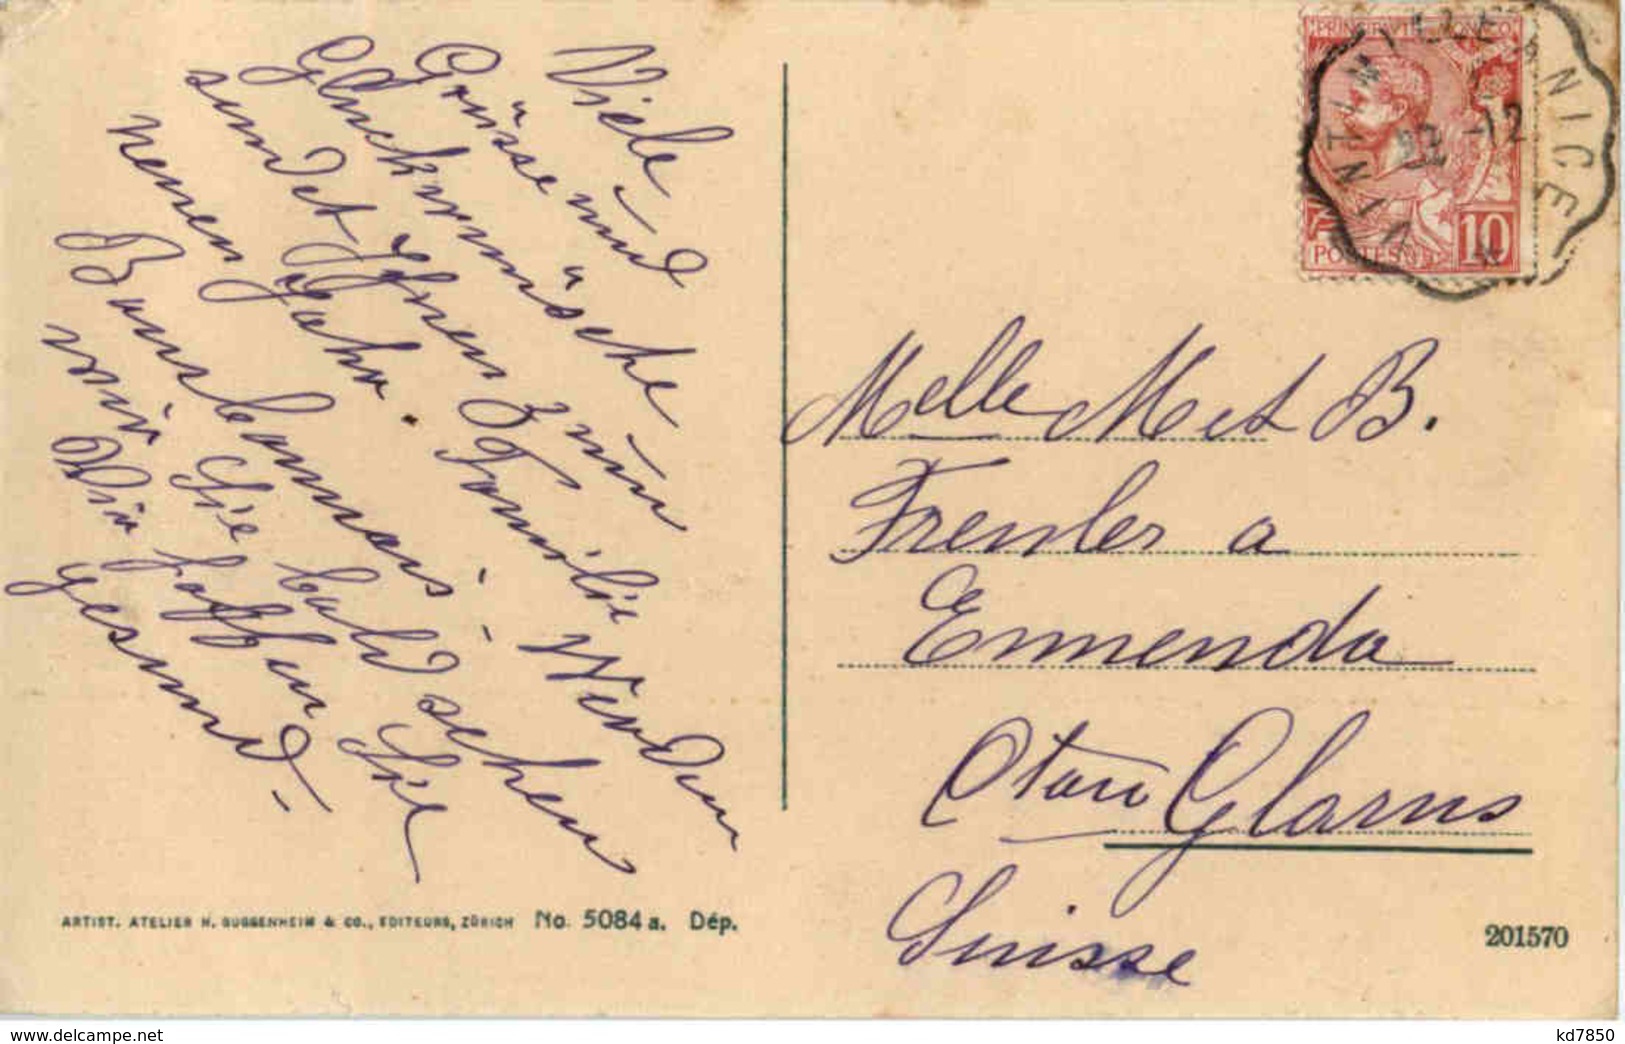 Viele
Grüsse und
Glückwünsche
sendet Ihnen zum
neuen Jahr. Familie
Wir hoffen Sie
gesund.
wir Sie bald sehen
Werden
Melle M et B.
Frenler a
Ennenda
Cton Glarus
Suisse
PRINCIPAUTÉ DE MONACO
POSTES
10
VINTIMILLE A NICE
22 -12
ARTIST. ATELIER H. GUGGENHEIM & CO., EDITEURS, ZÜRICH No. 5084a. Dép.
201570
www.delcampe.net
kd7850